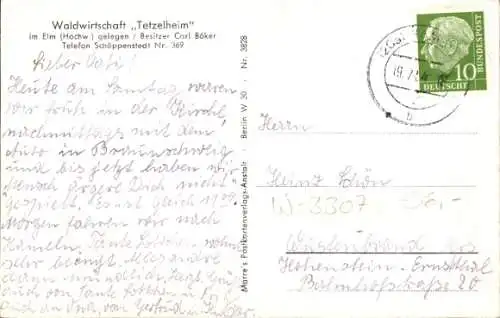 Waldwirtschaft „Tetzelheim"
im Elm (Hochw.) gelegen / Besitzer Carl Böker
Telefon Schöppenstedt Nr. 369
Lieber Vati!
Heute am Samstag waren
wir früh in der Kirche,
nachmittags mit dem
Auto in Braunschweig
und bis jetzt haben wir
"Mensch ärgere Dich nicht"
gespielt. Es ist gleich 11 Uhr.
Morgen fahren wir nach
Hameln. Tante Lottchen
sehr beengt. Alles andere
dann mündlich. Herzl. Grüße
auch von Tante Lottchen
auch an Dich, von Gertrud
Marre's Postkartenverlags-Anstalt · Berlin W 30 · Nr. 3828
10
DEUTSCHE BUNDESPOST
(20a)
19.7.54
b
Herrn
Heinz Schön
W-3307
Wüstenbrand bei
Hohenstein-Ernstthal
Bahnhofstrasse 20